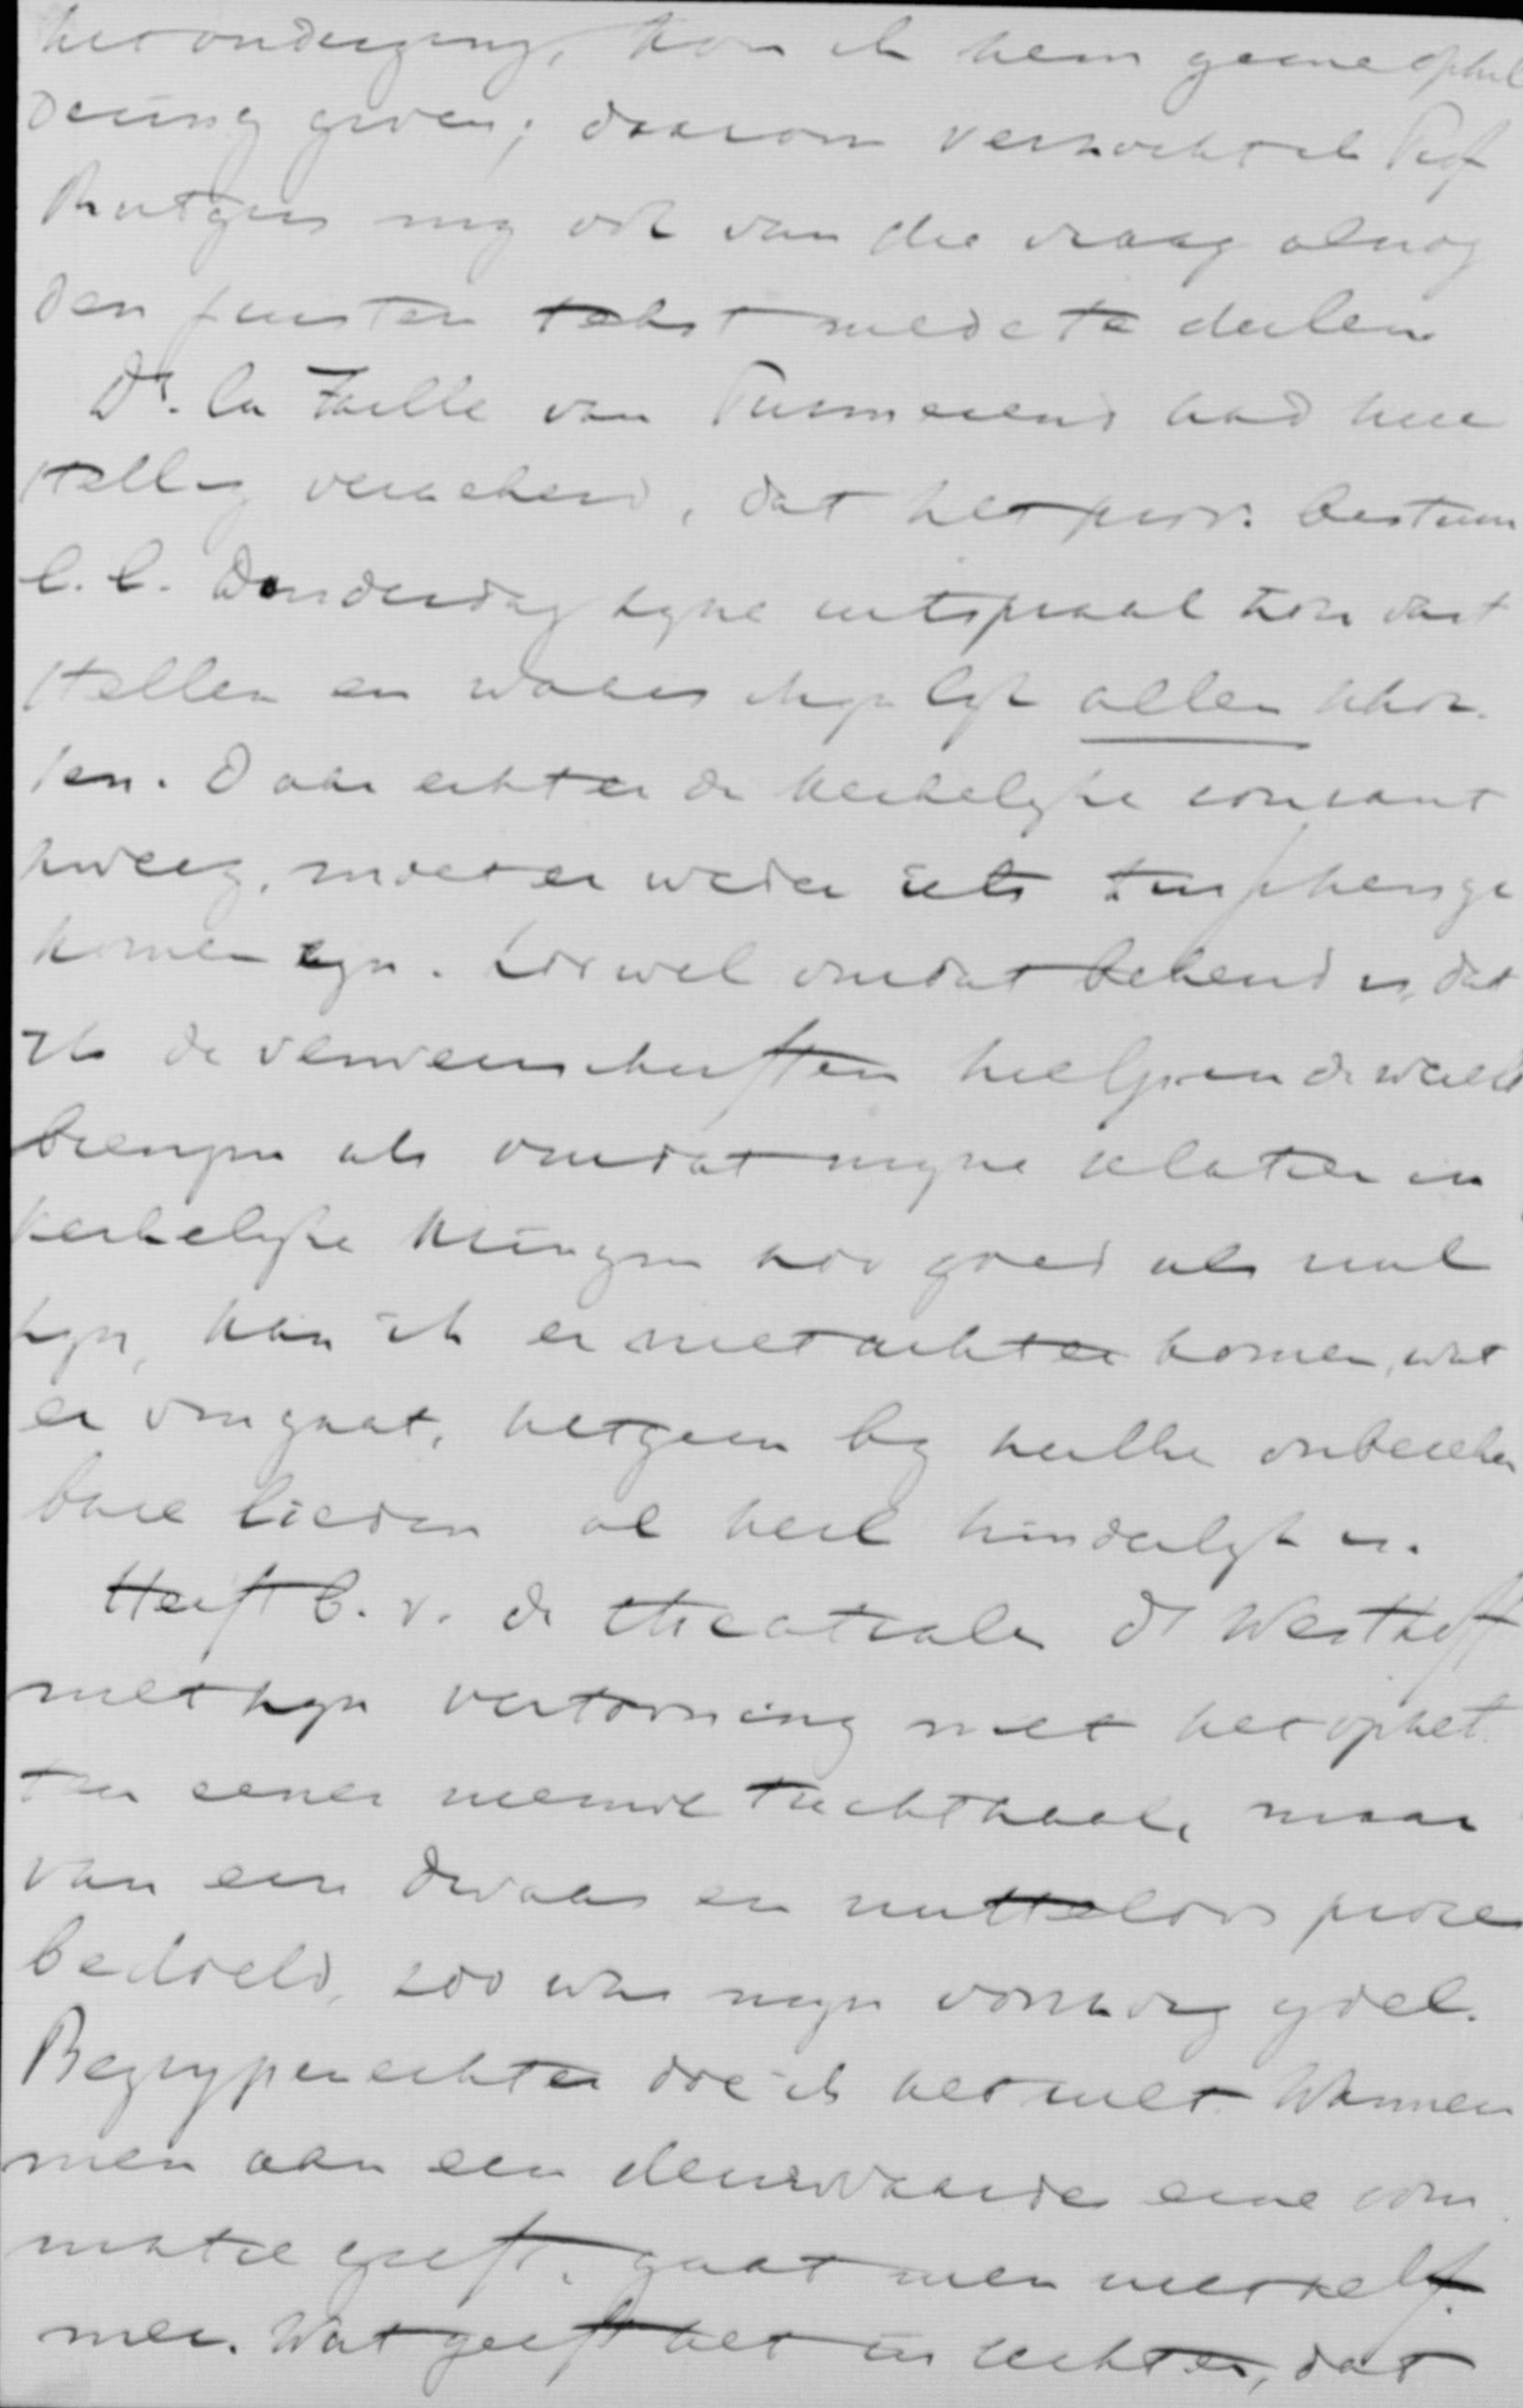 het onderging, kon ik hem geene ophel
dering geven; daarom verzocht ik Prof
Rutgers mij ook van die vraag alnog
den juisten tekst mede te deelen
Dr. la Faille van Purmerend had hier
stellig verzekerd, dat het prov. bestuur
l.l. Donderdag zijne uitspraak zou vast
stellen en waarschijnlijk allen schor
sen. Daar echter de kerkelijke courant
zweeg, moet er weder iets tusschenge
komen zijn. Zoowel omdat bekend is, dat
ik de verweerschriften hielp in de wereld
brengen als omdat mijne relatien in
kerkelijke kringen zoo goed als nul
zijn, kan ik er niet achter komen, wat
er omgaat, hetgeen bij zulke onbereken
bare lieden al heel hinderlijk is.
Heeft b.v. de theatrale Dr Westhoff
met zijn vertooning niet het ophet
ten eener nieuwe tuchtzaak, maar
van een dwaas en nutteloos proces
bedoeld, zoo was mijn voorzorg ijdel.
Begrijpen echter doe ik het niet. Wanneer
men aan een deurwaarder eene som
matie geeft, gaat men niet zelf
mee. Wat geeft het in rechten, dat